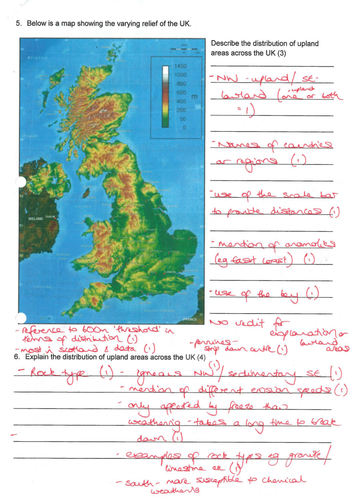 5. Below is a map showing the varying relief of the UK.
Describe the distribution of upland
areas across the UK (3)
1450
1000
600
400
200
100
50
0
m
IRELAND
- NW - upland / SE -
lowland (one or both
upland
= 1)
- Names of countries
or regions (1)
- use of the scale bar
to provide distances (1)
- mention of anomalies
(eg East Coast) (1)
- use of the key (1)
No credit for
explanation or
lowland
areas
- reference to 600m 'threshold' in
terms of distribution (1)
- most in Scotland & data (1)
- pennines -
strip down centre (1)
6. Explain the distribution of upland areas across the UK (4)
- Rock type (1) - igneous NW / sedimentary SE (1)
(1)
- mention of different erosion speeds (1)
- only affected by freeze thaw
weathering - takes a long time to break
down (1)
- examples of rock types eg granite /
limestone etc (1)
- south - more susceptible to chemical
weathering